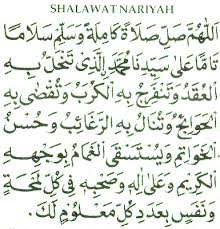 SHALAWAT NARIYAH
اَللّٰهُمَّ صَلِّ صَلَاةً كَامِلَةً وَسَلِّمْ سَلَامًا
تَامًّا عَلَى سَيِّدِنَا مُحَمَّدِ الَّذِي تَنْحَلُّ بِهِ
الْعُقَدُ وَتَنْفَرِجُ بِهِ الْكُرَبُ وَتُقْضَى بِهِ
الْحَوَائِجُ وَتُنَالُ بِهِ الرَّغَائِبُ وَحُسْنُ
الْخَوَاتِمِ وَيُسْتَسْقَى الْغَمَامُ بِوَجْهِهِ
الْكَرِيْمِ وَعَلَى اٰلِهِ وَصَحْبِهِ فِي كُلِّ لَمْحَةٍ
وَنَفَسٍ بِعَدَدِ كُلِّ مَعْلُوْمٍ لَكَ.